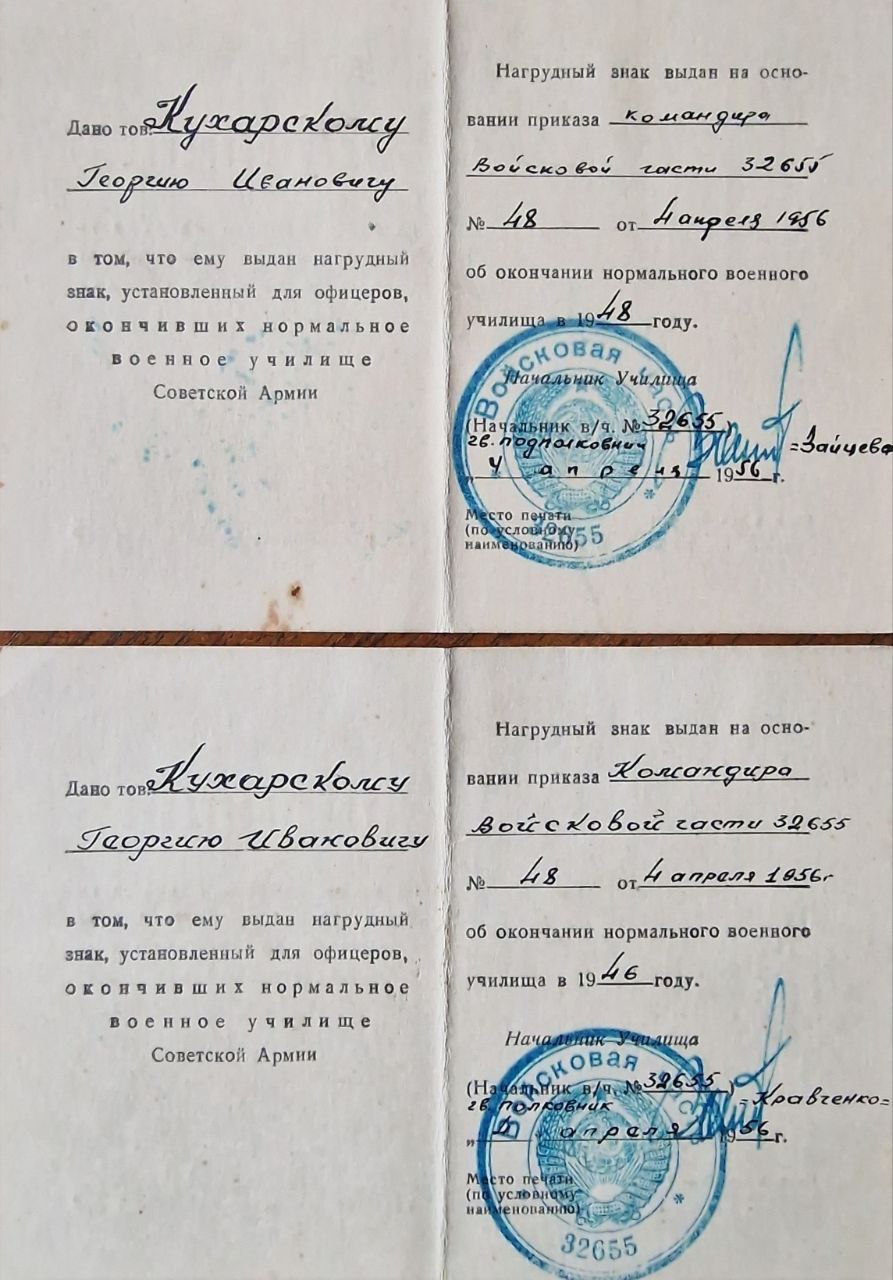 Дано тов. Кухарскому
Георгию Ивановичу
в том, что ему выдан нагрудный
знак, установленный для офицеров,
окончивших нормальное
военное училище
Советской Армии
Нагрудный знак выдан на осно-
вании приказа командира
Войсковой части 32655
№ 48 от 4 апреля 1956
об окончании нормального военного
училища в 1948 году.
Начальник Училища
(Начальник в/ч. № 32655)
гв. подполковник =Зайцев
„4 апреля 1956 г.
Место печати
(по условному
наименованию)
Войсковая часть
32655
Дано тов. Кухарскому
Георгию Ивановичу
в том, что ему выдан нагрудный
знак, установленный для офицеров,
окончивших нормальное
военное училище
Советской Армии
Нагрудный знак выдан на осно-
вании приказа Командира
Войсковой части 32655
№ 48 от 4 апреля 1956г
об окончании нормального военного
училища в 1946 году.
Начальник Училища
(Начальник в/ч. № 32655)
гв. полковник =Кравченко=
„ апреля 1956 г.
Место печати
(по условному
наименованию)
Войсковая
32655